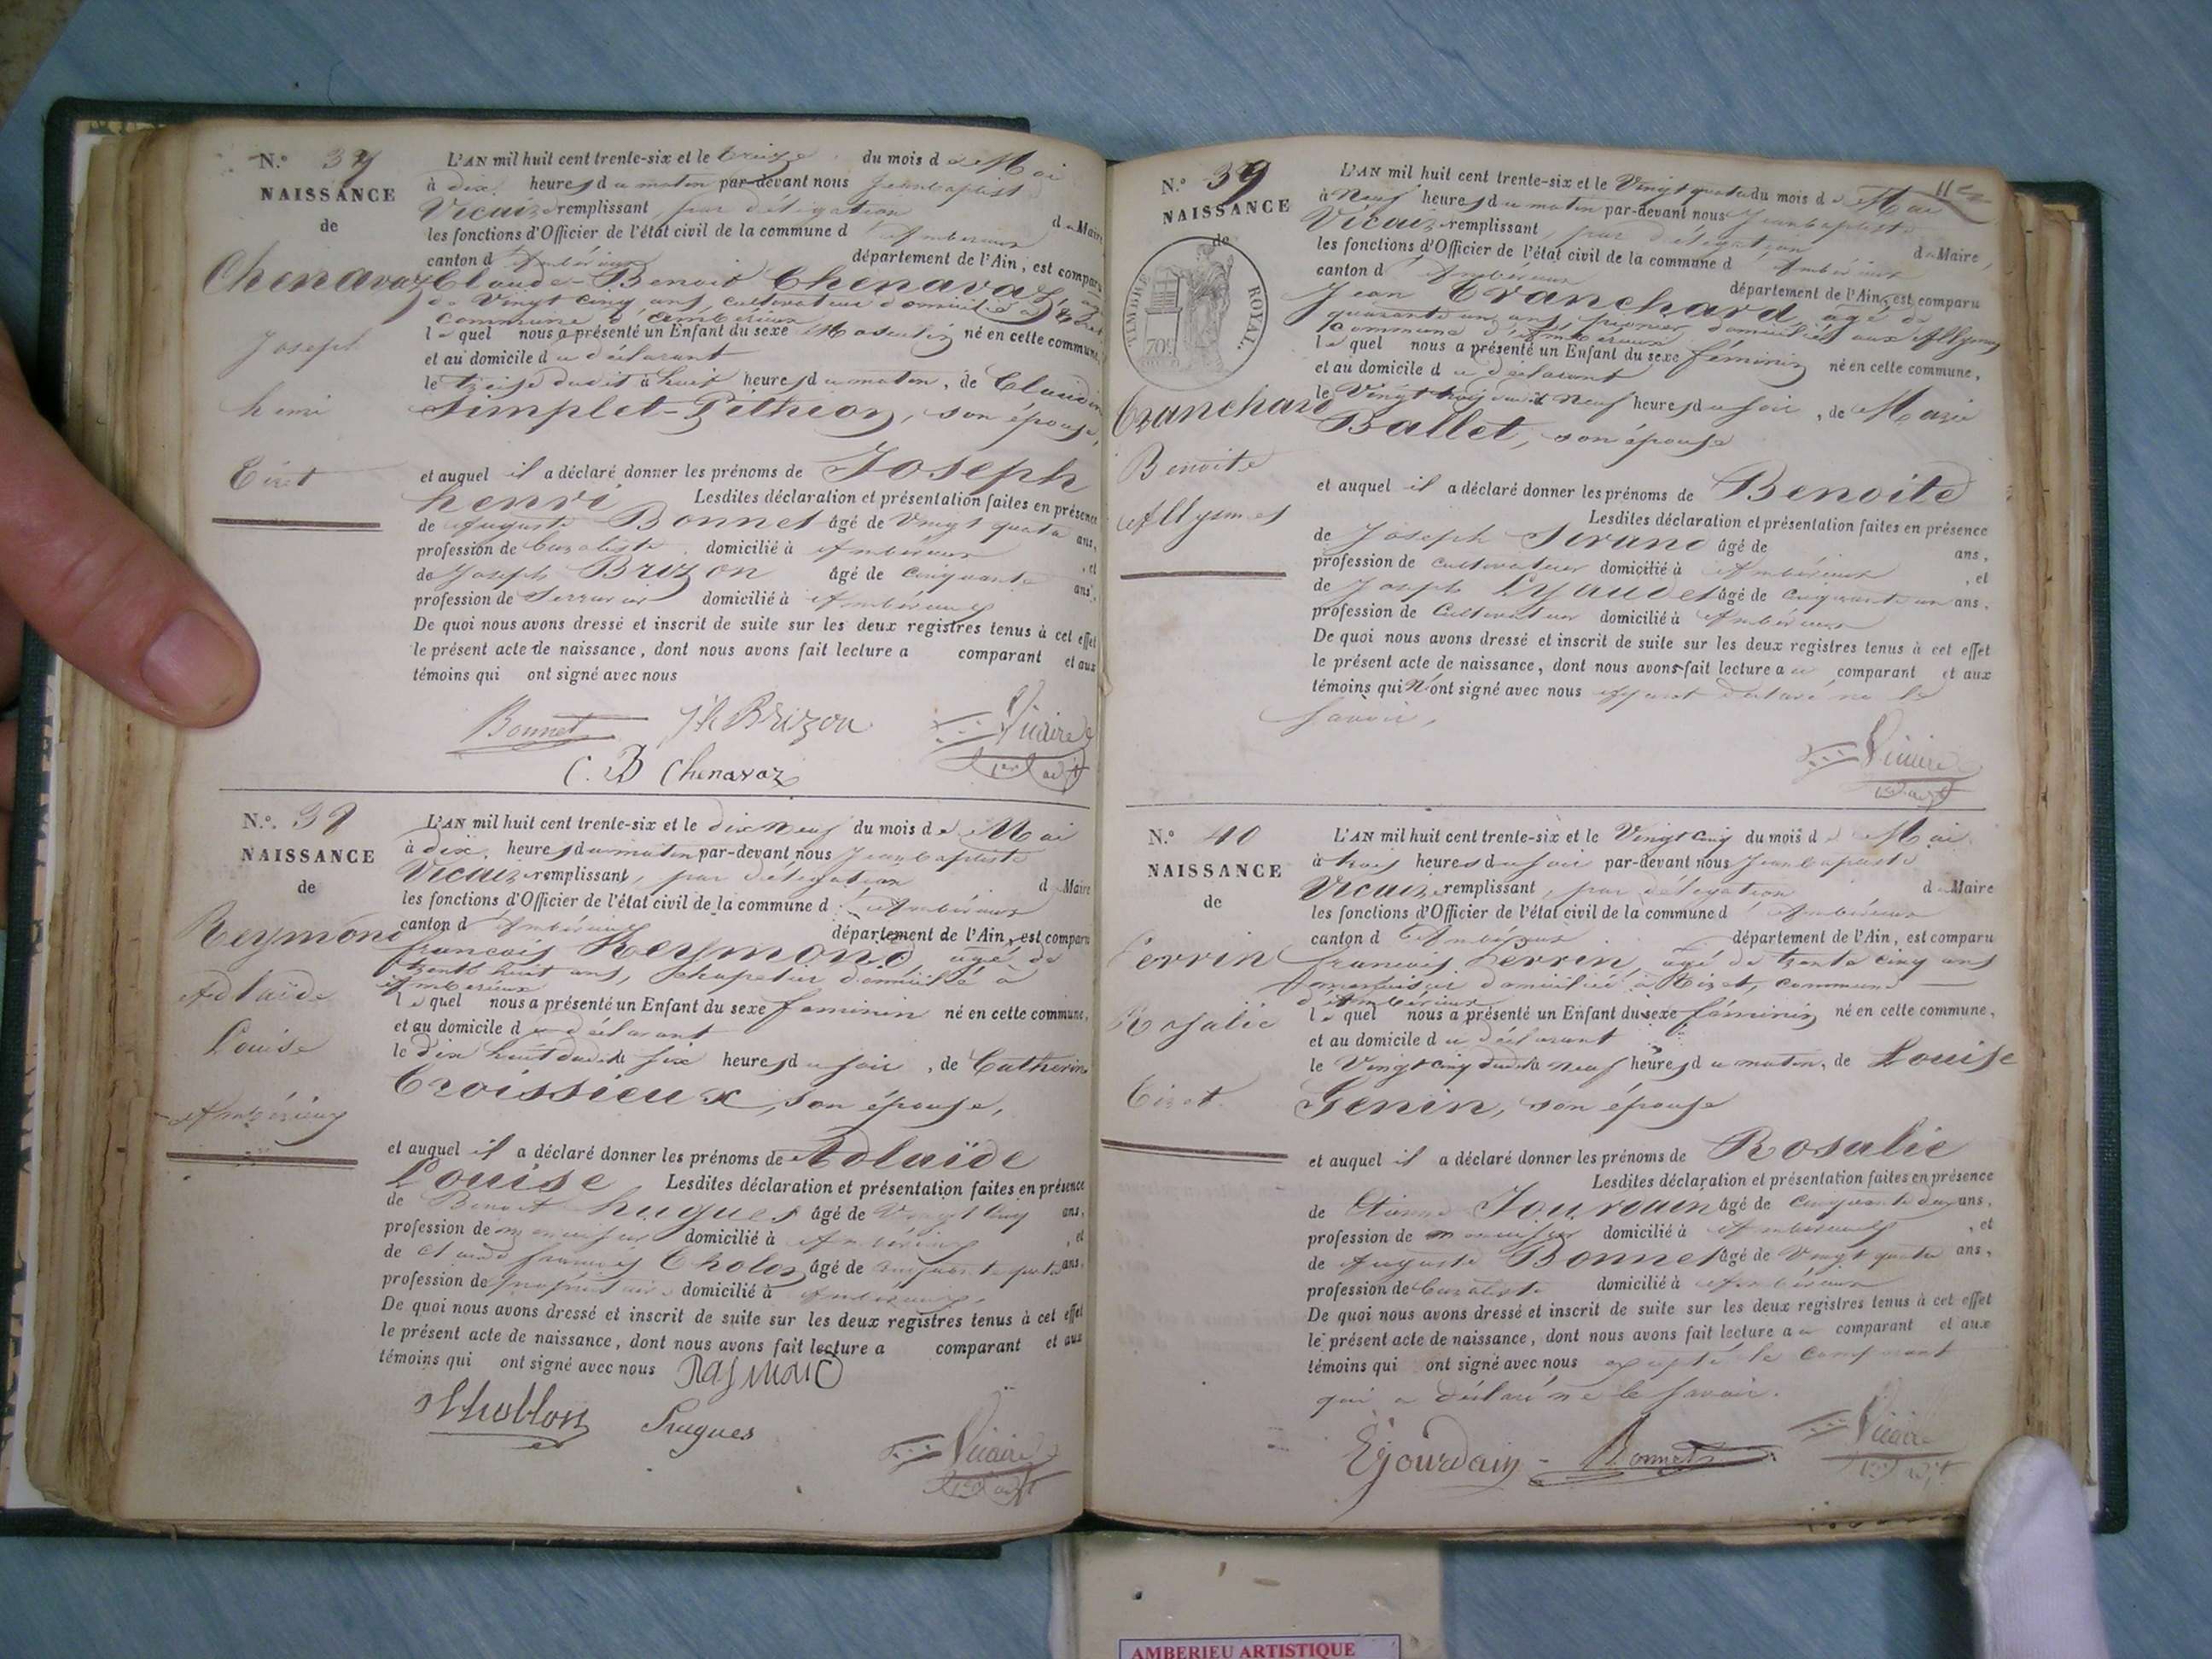 N.° 37
NAISSANCE
de
Chenavaz
Joseph
henri
Tiret
L'AN mil huit cent trente-six et le treize du mois de Mai
à dix heures du matin par-devant nous Jeanbaptiste
Vicaire remplissant, par délégation du Maire
les fonctions d'Officier de l'état civil de la commune d'Ambérieux
canton d'Ambérieux département de l'Ain, est comparu
Claude-Benoit Chenavaz, agé
de Vingt cinq ans, cultivateur domicilié à Tiret
commune d'Ambérieux
lequel nous a présenté un Enfant du sexe Masculin né en cette commune,
et au domicile du déclarant
le treize dudit à huit heures du matin, de Claudine
Simplet-Pithion, son épouse,
et auquel il a déclaré donner les prénoms de Joseph
henri Lesdites déclaration et présentation faites en présence
de Auguste Bonnet âgé de Vingt quatre ans,
profession de Buraliste domicilié à Ambérieux, et
de Joseph Brizon âgé de cinquante ans,
profession de Serrurier domicilié à Ambérieux
De quoi nous avons dressé et inscrit de suite sur les deux registres tenus à cet effet
le présent acte de naissance, dont nous avons fait lecture a comparant et aux
témoins qui ont signé avec nous
Bonnet Jh Brizon Vicaire
C. B Chenavaz
N.° 38
NAISSANCE
de
Reymond
Adlaïde
Louise
Ambérieux
L'AN mil huit cent trente-six et le dix Neuf du mois de Mai
à dix heures du matin par-devant nous Jeanbaptiste
Vicaire remplissant, par délégation du Maire
les fonctions d'Officier de l'état civil de la commune d'Ambérieux
canton d'Ambérieux département de l'Ain, est comparu
francois Reymond agé de
trente huit ans, chapelier domicilié à
Ambérieux
lequel nous a présenté un Enfant du sexe feminin né en cette commune,
et au domicile du déclarant
le dix huit dudit à six heures du soir, de Catherine
Croissieux, son épouse,
et auquel il a déclaré donner les prénoms de Adlaïde
Louise Lesdites déclaration et présentation faites en présence
de Benoit hugues âgé de Vingt cinq ans,
profession de menuisier domicilié à Ambérieux, et
de Claude françois Cholon âgé de cinquante quatre ans,
profession de propriétaire domicilié à Ambérieux,
De quoi nous avons dressé et inscrit de suite sur les deux registres tenus à cet effet
le présent acte de naissance, dont nous avons fait lecture a comparant et aux
témoins qui ont signé avec nous
hugues Vicaire
N.° 39
NAISSANCE
de
TIMBRE ROYAL.
Tranchard
Benoite
Allymes
L'AN mil huit cent trente-six et le Vingt quatre du mois de Mai
à Neuf heures du matin par-devant nous Jeanbaptiste
Vicaire remplissant, par délégation du Maire,
les fonctions d'Officier de l'état civil de la commune d'Ambérieux
canton d'Ambérieux département de l'Ain, est comparu
Jean Tranchard agé de
quarante un ans, domicilié aux Allymes
Commune d'Ambérieux
lequel nous a présenté un Enfant du sexe féminin né en cette commune,
et au domicile du déclarant
le Vingt trois dudit Neuf heures du soir, de Marie
Ballet, son épouse
et auquel il a déclaré donner les prénoms de Benoite
Lesdites déclaration et présentation faites en présence
de Joseph Serand âgé de ans,
profession de cultivateur domicilié à Ambérieux, et
de Joseph Lyaudet âgé de cinquante un ans,
profession de Cultivateur domicilié à Ambérieux
De quoi nous avons dressé et inscrit de suite sur les deux registres tenus à cet effet
le présent acte de naissance, dont nous avons fait lecture au comparant et aux
témoins qui n'ont signé avec nous ayant déclaré ne le
savoir,
Vicaire
N.° 40
NAISSANCE
de
Perrin
Rosalie
Tiret
L'AN mil huit cent trente-six et le Vingt cinq du mois de Mai
à trois heures du soir par-devant nous Jeanbaptiste
Vicaire remplissant, par délégation du Maire
les fonctions d'Officier de l'état civil de la commune d'Ambérieux
canton d'Ambérieux département de l'Ain, est comparu
francois Perrin agé de trente cinq ans
menuisier domicilié à Tiret, commune
d'Ambérieux
lequel nous a présenté un Enfant du sexe féminin né en cette commune,
et au domicile du déclarant
le Vingt cinq dudit à neuf heures du matin, de Louise
Genin, son épouse
et auquel il a déclaré donner les prénoms de Rosalie
Lesdites déclaration et présentation faites en présence
de Etienne Jourdain âgé de cinquante deux ans,
profession de menuisier domicilié à Ambérieux, et
de Auguste Bonnet âgé de Vingt quatre ans,
profession de Buraliste domicilié à Ambérieux
De quoi nous avons dressé et inscrit de suite sur les deux registres tenus à cet effet
le présent acte de naissance, dont nous avons fait lecture au comparant et aux
témoins qui ont signé avec nous excepté le comparant
qui a déclaré ne le savoir.
E Jourdain Bonnet Vicaire
AMBERIEU ARTISTIQUE